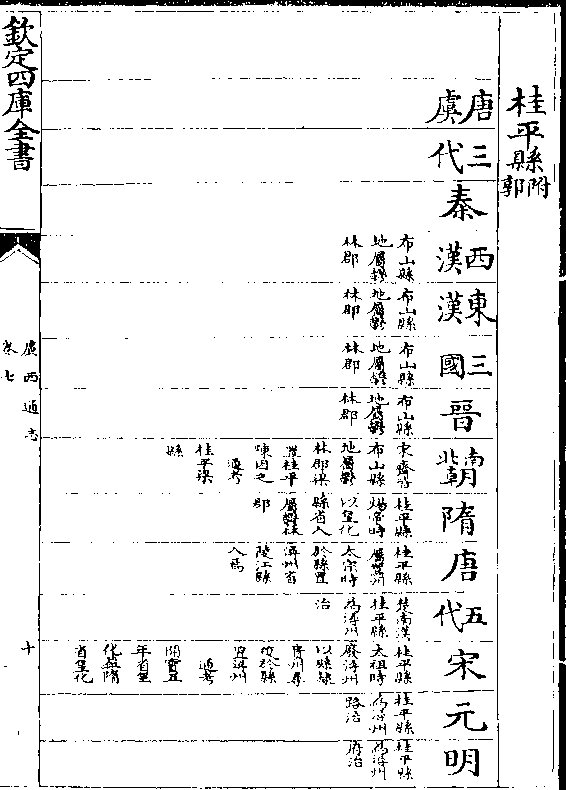 欽定四庫全書
廣西通志
卷七
十
桂平縣附郭
唐虞
三代
秦
西漢
布山縣
地屬鬱
林郡
東漢
布山縣
地屬鬱
林郡
三國
布山縣
地屬鬱
林郡
晉
布山縣
地屬鬱
林郡
南北朝
宋齊皆
布山縣
地屬鬱
林郡梁
置桂平
陳因之
通考
桂平梁
縣
隋
桂平縣
煬帝時
以皇化
縣省入
屬鬱林
郡
唐
桂平縣
太宗時
於縣置
潯州省
陵江縣
入焉
五代
楚南漢
桂平縣
為潯州
治
宋
桂平縣
太祖時
廢潯州
以縣隸
貴州尋
復於縣
置潯州
通考
開寶五
年省皇
化縣隋
省皇化
元
桂平縣
為潯州
路治
明
桂平縣
為潯州
府治